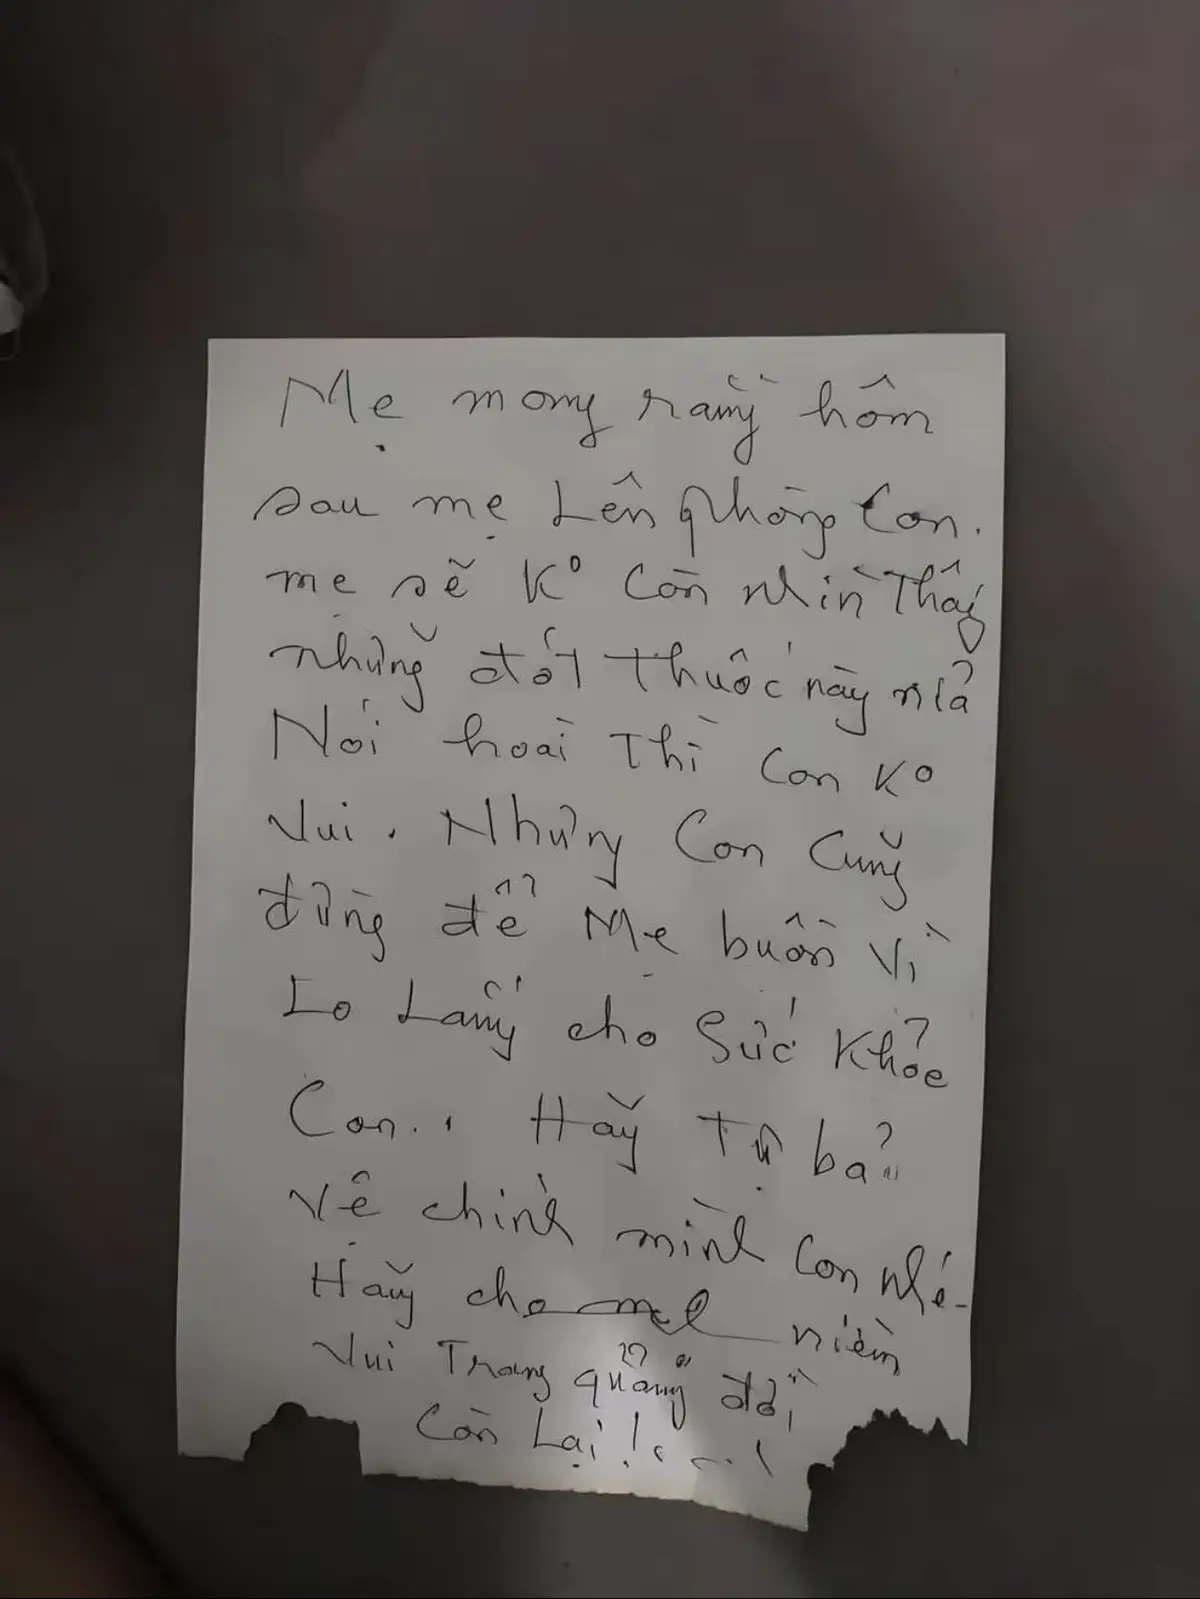 Mẹ mong rằng hôm
sau mẹ Lên phòng Con.
mẹ sẽ Ko Còn nhìn Thấy
những đót thuốc này nữa
Nói hoài Thì Con Ko
Vui. Nhưng Con Cũng
đừng để Mẹ buồn Vì
Lo Lắng cho Sức Khỏe
Con.. Hãy Tự bảo
Vệ chính mình Con nhé.
Hãy cho mẹ niềm
Vui Trong quãng đời
Còn Lại!